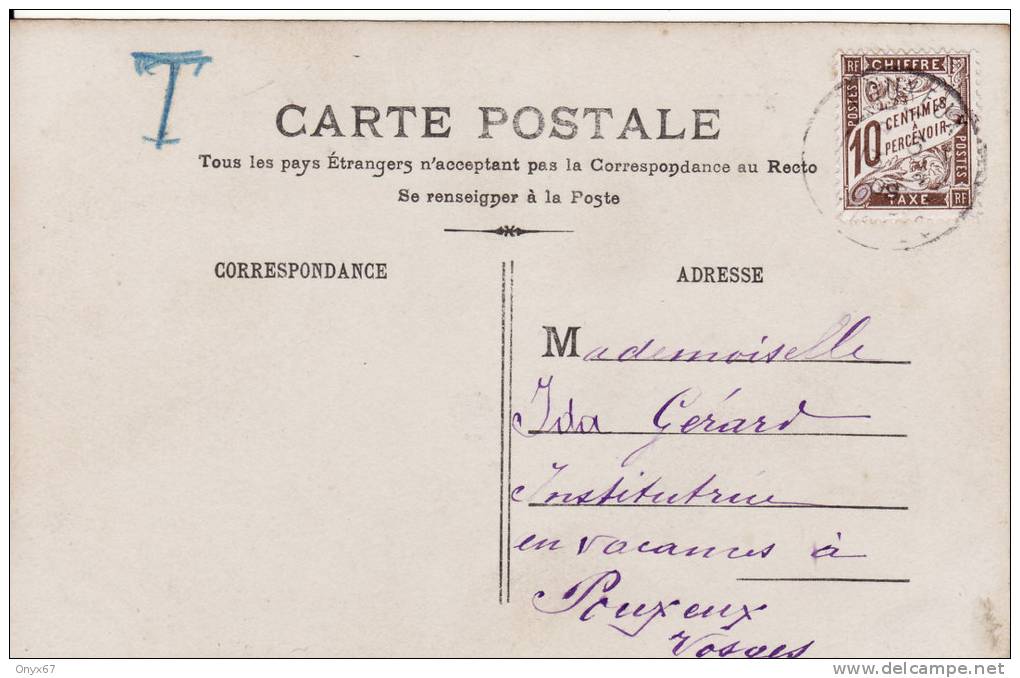 T
RF CHIFFRE
POSTES
10 CENTIMES
À PERCEVOIR
POSTES
TAXE RF
CARTE POSTALE
Tous les pays Étrangers n'acceptant pas la Correspondance au Recto
Se renseigner à la Poste
CORRESPONDANCE
ADRESSE
Mademoiselle
Ida Gérard
Institutrice
en vacances à
Pouxeux
Vosges
Onyx67
delcampe.net